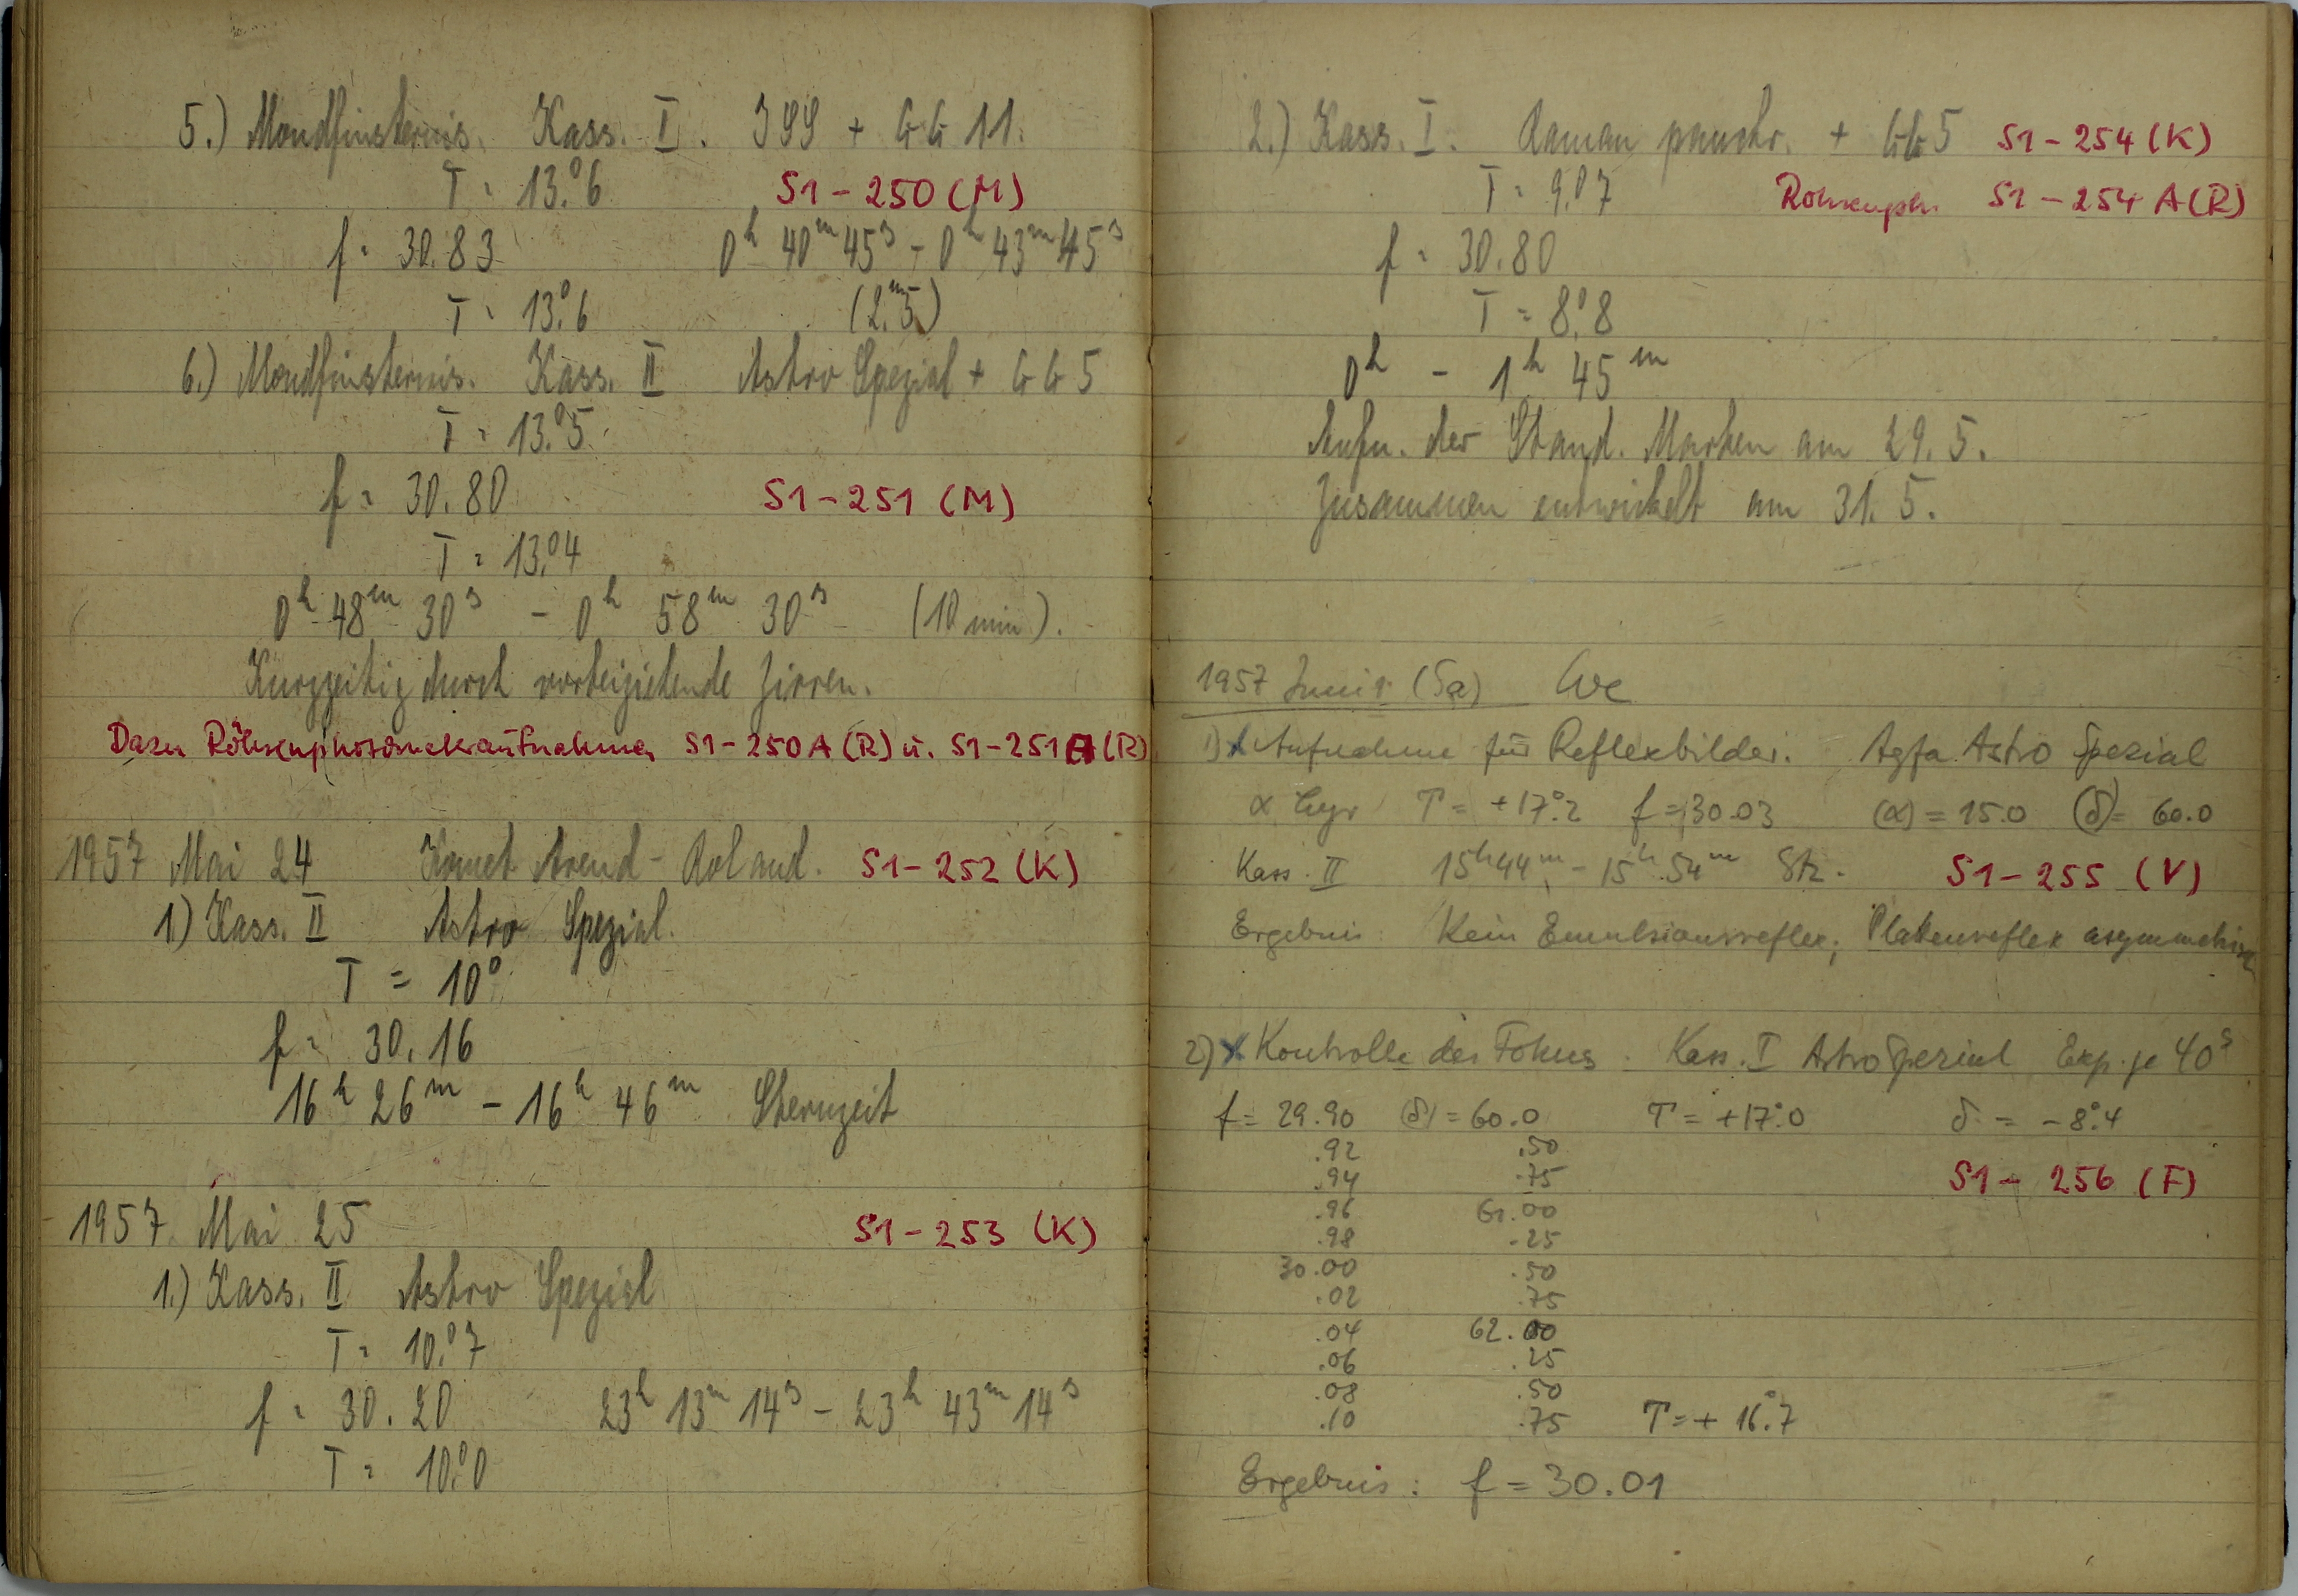 5.) Mondfinsternis. Kass. I. ISS + GG 11.
T = 13.°6 S1-250 (M)
f = 30.83 0h 40m 45s - 0h 43m 45s
T = 13.°6 (2.m5)
6.) Mondfinsternis. Kass. II Astro Spezial + GG 5
T = 13.°5
f = 30.80 S1-251 (M)
T = 13.°4
0h 48m 30s - 0h 58m 30s (10 min).
Kurzzeitig durch vorbeiziehende Zirren.
Dazu Röhrenphotometeraufnahmen S1-250A (R) u. S1-251A (R)
1957 Mai 24 Komet Arend-Roland. S1-252 (K)
1) Kass. II Astro Spezial.
T = 10°
f = 30.16
16h 26m - 16h 46m Sternzeit
1957 Mai 25 S1-253 (K)
1.) Kass. II Astro Spezial
T = 10.°7
f = 30.20 23h 13m 14s - 23h 43m 14s
T = 10.°0
2.) Kass. I. Raman panchr. + GG5 S1-254 (K)
T = 9.°7 Röhrenph. S1-254 A (R)
f = 30.80
T = 8.°8
0h - 1h 45m
Aufn. der Stand. Marken am 29. 5.
Zusammen entwickelt am 31. 5.
1957 Juni 1. (Sa) We
1) x Aufnahme für Reflexbilder. Agfa Astro Spezial
α Lyr T = +17.°2 f = 30.03 (α) = 15.0 (δ) = 60.0
Kass. II 15h44m - 15h54m Stz. S1-255 (V)
Ergebnis: Kein Emulsionsreflex; Plattenreflex asymmetrisch
2) x Kontrolle des Fokus. Kass. I Astro Spezial Exp. je 40s
f = 29.90 (δ) = 60.0 T = +17.°0 δ = -8.°4
.92 .50
.94 .75 S1-256 (F)
.96 61.00
.98 .25
30.00 .50
.02 .75
.04 62.00
.06 .25
.08 .50
.10 .75 T = + 16.°7
Ergebnis: f = 30.01